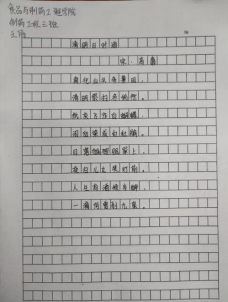 食品与制药工程学院
制药工程三班
清明日对酒
宋·高翥
南北山头多墓田,
清明祭扫各纷然。
纸灰飞作白蝴蝶,
泪血染成红杜鹃。
日落狐狸眠冢上,
夜归儿女笑灯前。
人生有酒须当醉,
一滴何曾到九泉。